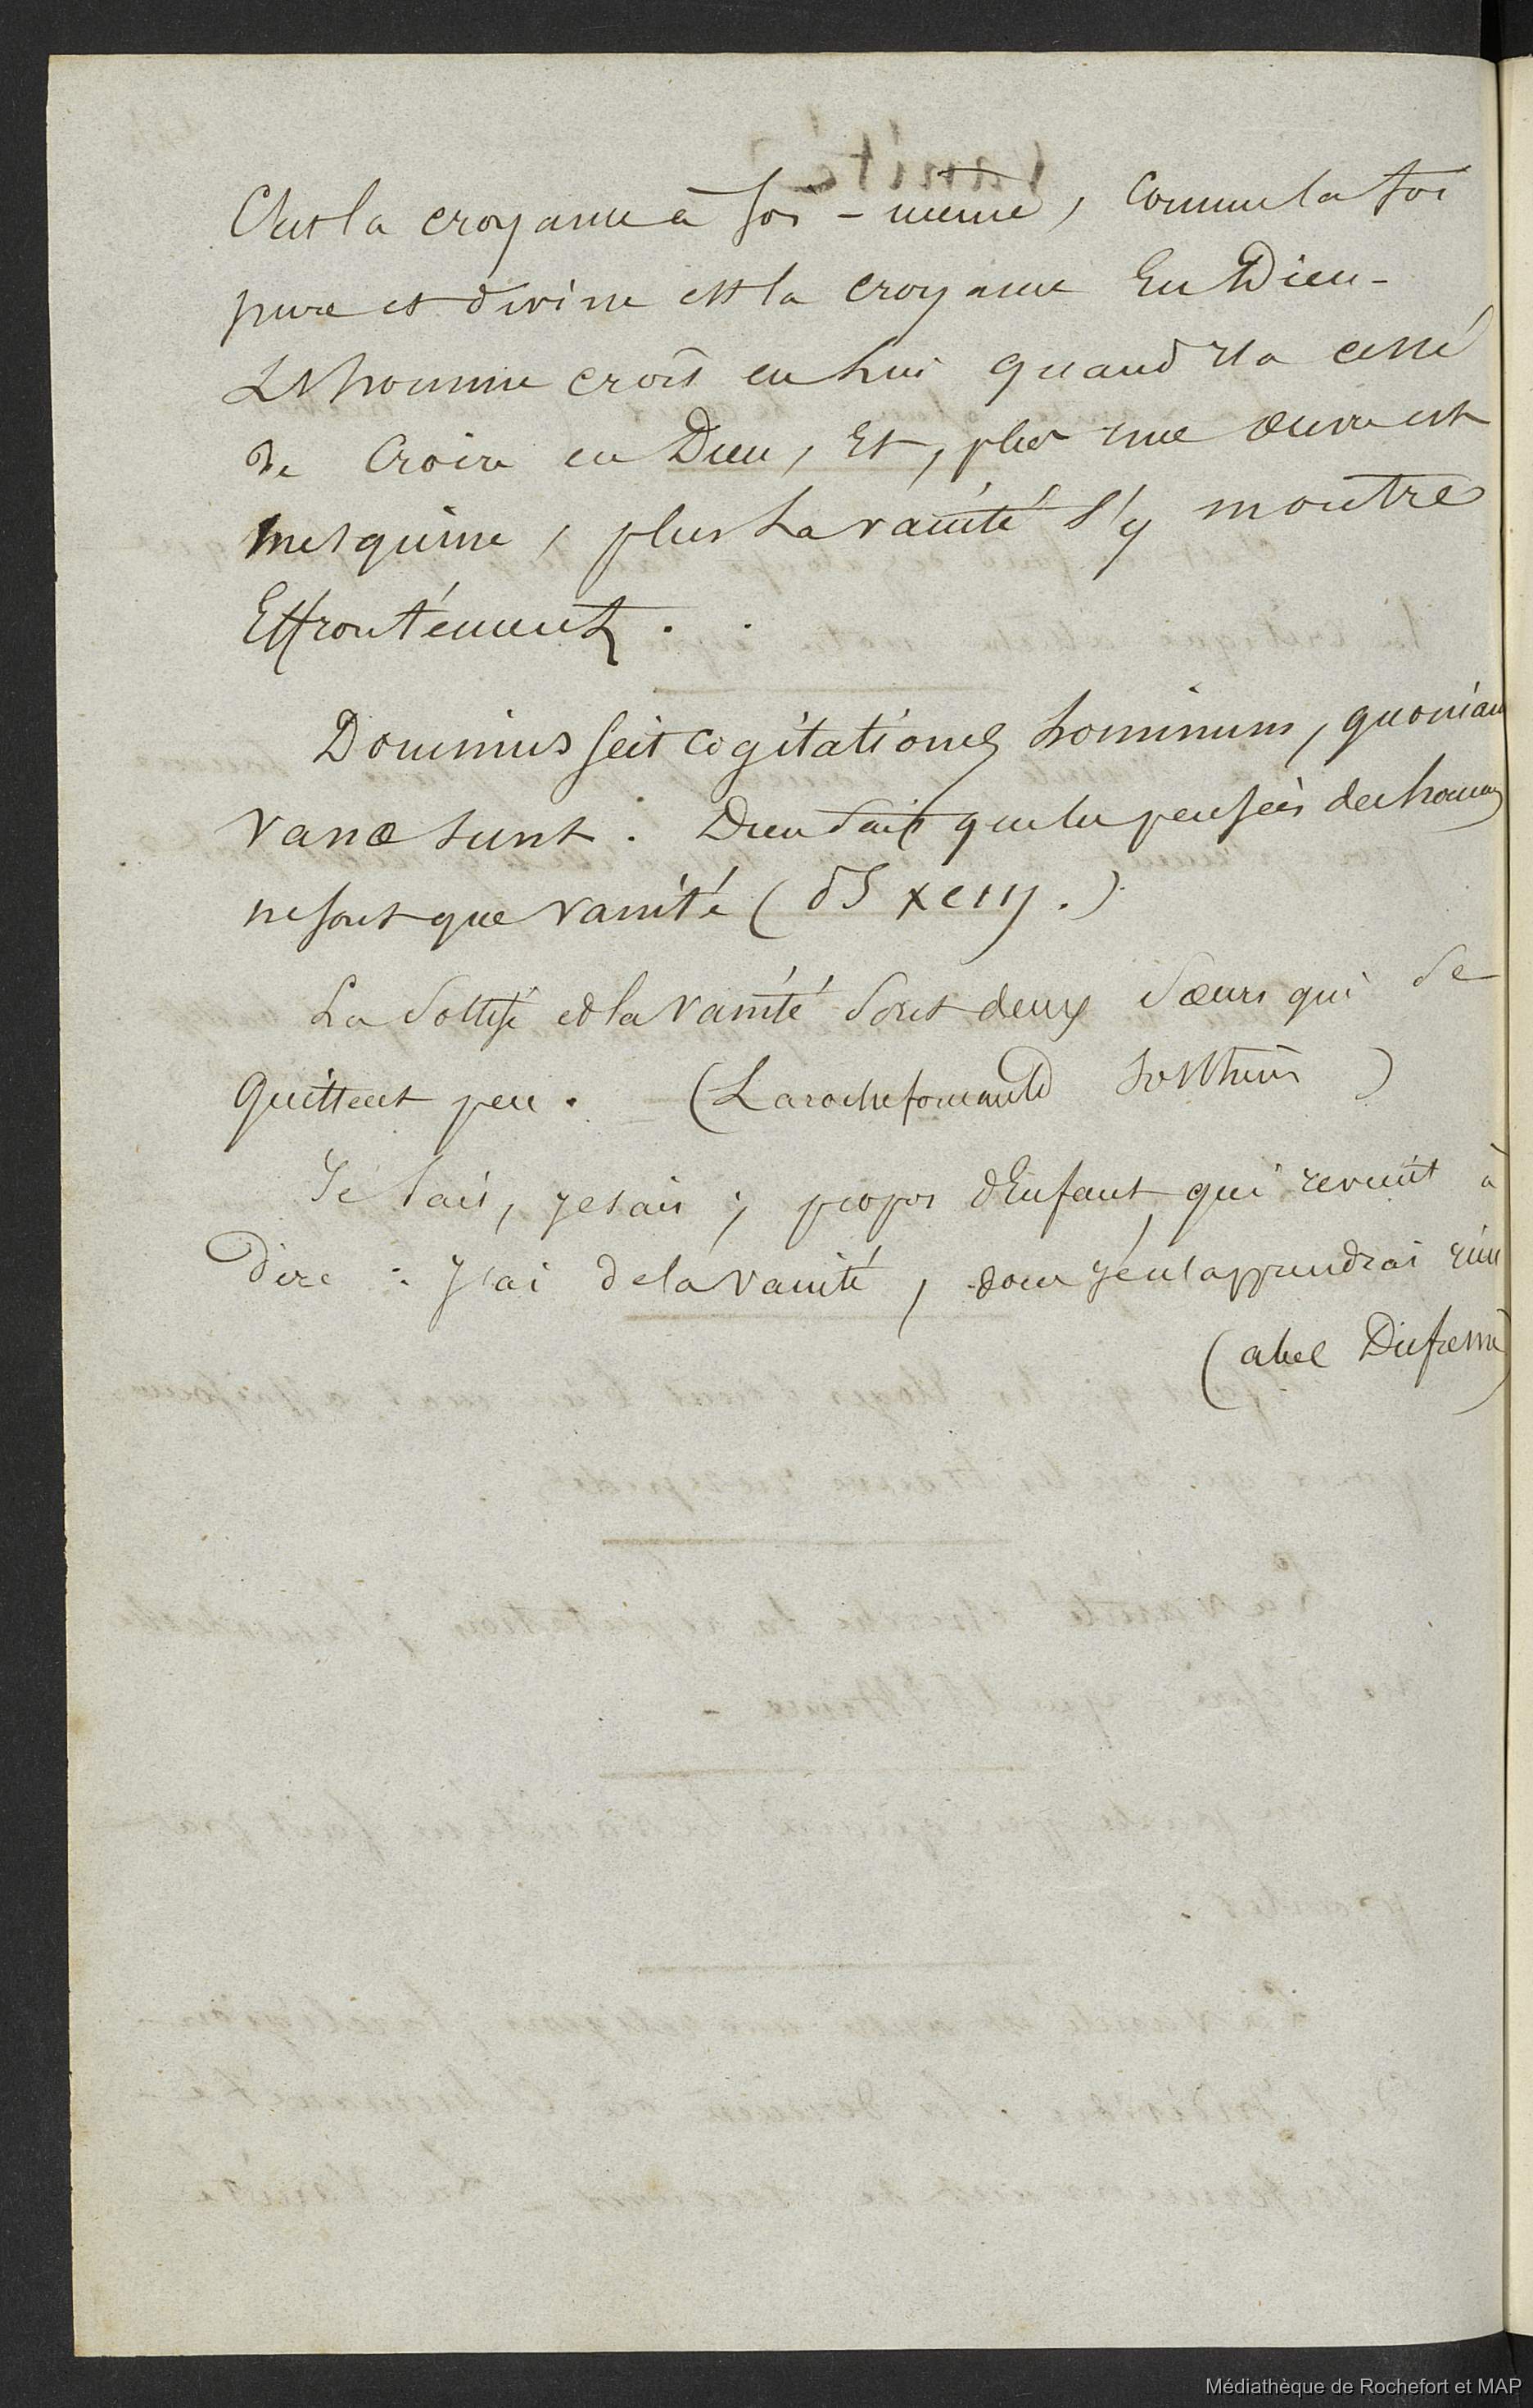 C'est la croyance à soi-même, comme la foi
pure et divine est la croyance En Dieu -
L'homme croit en Lui quand Il a cessé
de Croire en Dieu, Et, plus une œuvre est
mesquine, plus La vanité s'y montre
Effrontément.
Dominus scit cogitationes hominum, quoniam
vanæ sunt. Dieu sait que les pensées des hommes
ne sont que vanité (
La Sottise et la Vanité sont deux Sœurs qui se
quittent peu. (Larochefoucauld
Je sais, je sais ; propos d'Enfant qui revient à
dire : J'ai de la vanité, donc je n'apprendrai rien
(abel Dufresne)
Médiathèque de Rochefort et MAP